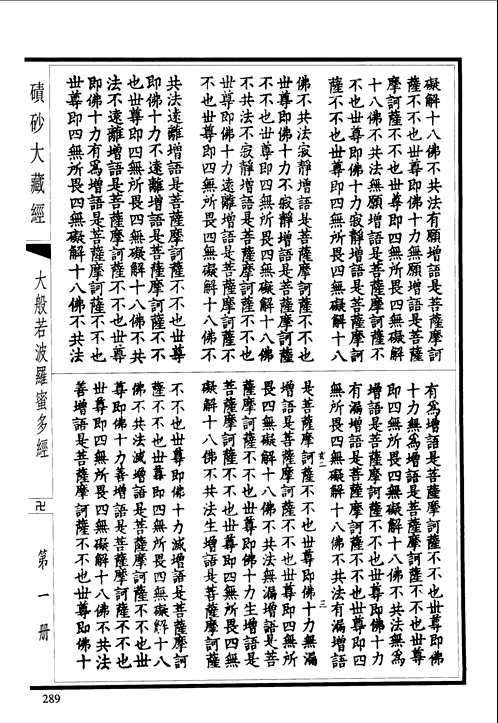 礙解十八佛不共法有願增語是菩薩摩訶
薩不不也世尊即佛十力無願增語是菩薩
摩訶薩不不也世尊即四無所畏四無礙解
十八佛不共法無願增語是菩薩摩訶薩不
不也世尊即佛十力寂靜增語是菩薩摩訶
薩不不也世尊即四無所畏四無礙解十八
佛不共法寂靜增語是菩薩摩訶薩不不也
世尊即佛十力不寂靜增語是菩薩摩訶薩
不不也世尊即四無所畏四無礙解十八佛
不共法不寂靜增語是菩薩摩訶薩不不也
世尊即佛十力遠離增語是菩薩摩訶薩不
不也世尊即四無所畏四無礙解十八佛不
共法遠離增語是菩薩摩訶薩不不也世尊
即佛十力不遠離增語是菩薩摩訶薩不不
也世尊即四無所畏四無礙解十八佛不共
法不遠離增語是菩薩摩訶薩不不也世尊
即佛十力有爲增語是菩薩摩訶薩不不也
世尊即四無所畏四無礙解十八佛不共法
有爲增語是菩薩摩訶薩不不也世尊即佛
十力無爲增語是菩薩摩訶薩不不也世尊
即四無所畏四無礙解十八佛不共法無爲
增語是菩薩摩訶薩不不也世尊即佛十力
有漏增語是菩薩摩訶薩不不也世尊即四
無所畏四無礙解十八佛不共法有漏增語
三
是菩薩摩訶薩不不也世尊即佛十力無漏
增語是菩薩摩訶薩不不也世尊即四無所
畏四無礙解十八佛不共法無漏增語是菩
薩摩訶薩不不也世尊即佛十力生增語是
菩薩摩訶薩不不也世尊即四無所畏四無
礙解十八佛不共法生增語是菩薩摩訶薩
不不也世尊即佛十力滅增語是菩薩摩訶
薩不不也世尊即四無所畏四無礙解十八
佛不共法滅增語是菩薩摩訶薩不不也世
尊即佛十力善增語是菩薩摩訶薩不不也
世尊即四無所畏四無礙解十八佛不共法
善增語是菩薩摩訶薩不不也世尊即佛十
磧砂大藏經 大般若波羅蜜多經 卍 第一册
289